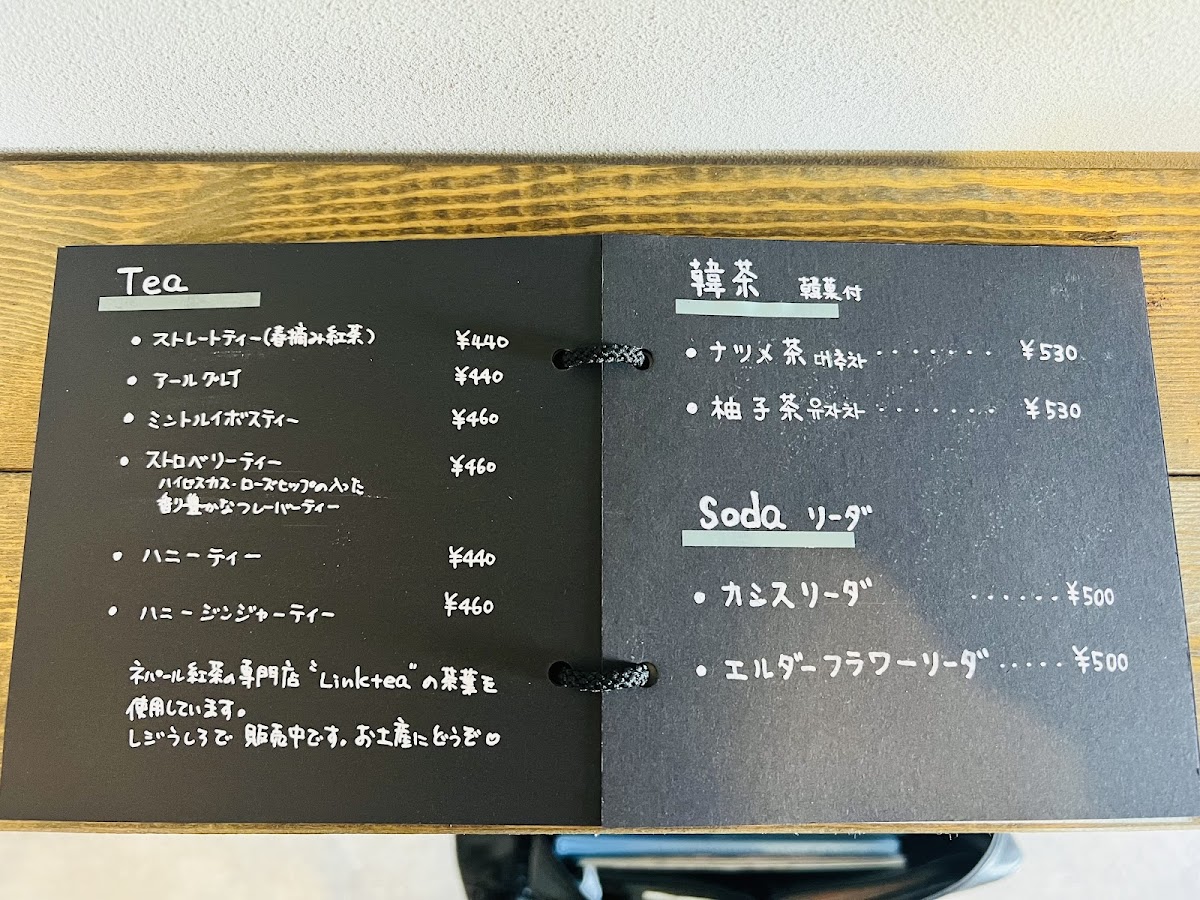 Tea
• ストレートティー(春摘み紅茶) ¥440
• アールグレイ ¥440
• ミントルイボスティー ¥460
• ストロベリーティー ¥460
ハイビスカス・ローズヒップの入った
香り豊かなフレーバーティー
• ハニーティー ¥440
• ハニージンジャーティー ¥460
ネパール紅茶の専門店“Linktea”の茶葉を
使用しています。
レジうしろで販売中です。お土産にどうぞ♡
韓茶 韓菓付
• ナツメ茶 대추차 ・・・・・・・ ¥530
• 柚子茶 유자차 ・・・・・・・ ¥530
Soda ソーダ
• カシスソーダ ・・・・・・ ¥500
• エルダーフラワーソーダ ・・・・・ ¥500